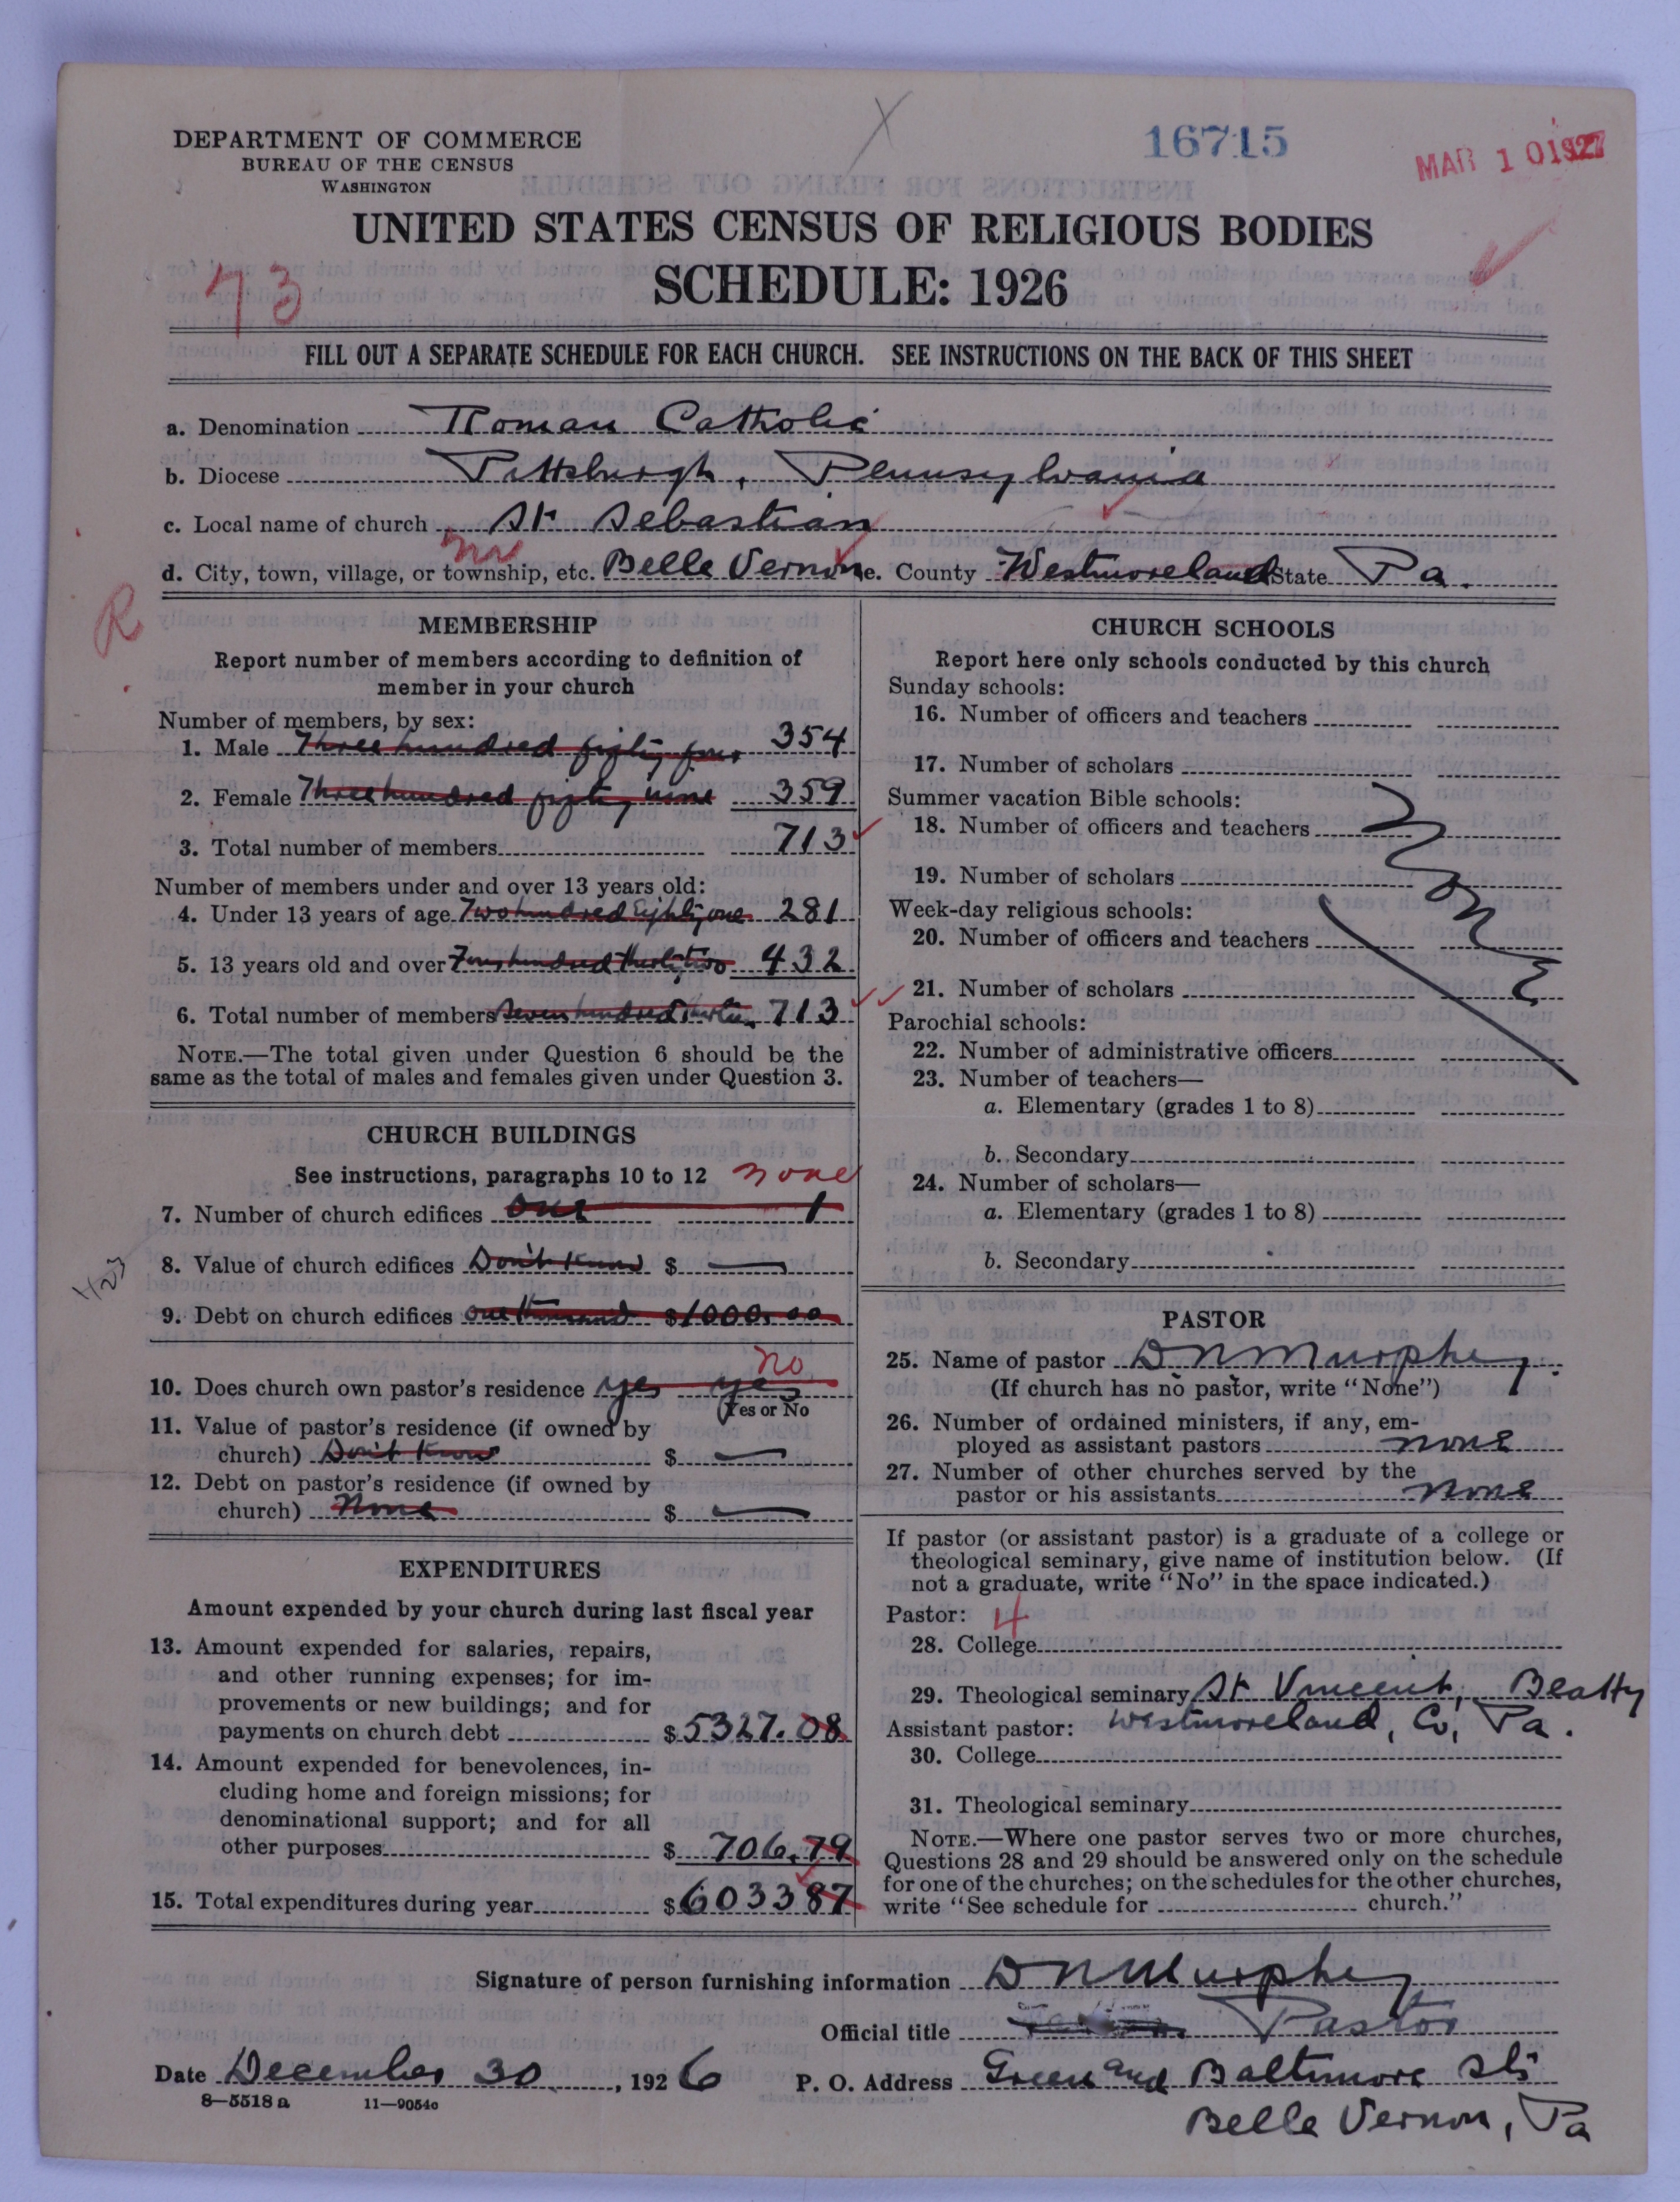 DEPARTMENT OF COMMERCE
BUREAU OF THE CENSUS
WASHINGTON
X
16715
MAR 10 1927
UNITED STATES CENSUS OF RELIGIOUS BODIES
SCHEDULE: 1926
73
FILL OUT A SEPARATE SCHEDULE FOR EACH CHURCH. SEE INSTRUCTIONS ON THE BACK OF THIS SHEET
a. Denomination Roman Catholic
b. Diocese Pittsburgh, Pennsylvania
c. Local name of church St Sebastian
d. City, town, village, or township, etc. Belle Vernon e. County Westmoreland State Pa.
R
MEMBERSHIP
Report number of members according to definition of
member in your church
Number of members, by sex:
1. Male Three hundred fifty four 354
2. Female Three hundred fifty nine 359
3. Total number of members 713
Number of members under and over 13 years old:
4. Under 13 years of age Two hundred Eighty one 281
5. 13 years old and over Four hundred thirty two 432
6. Total number of members Seven hundred Thirteen 713
NOTE.—The total given under Question 6 should be the
same as the total of males and females given under Question 3.
CHURCH BUILDINGS
See instructions, paragraphs 10 to 12 none
7. Number of church edifices One 1
8. Value of church edifices Don't Know $ —
9. Debt on church edifices One thousand $1000.00
no
10. Does church own pastor's residence yes yes
(Yes or No
11. Value of pastor's residence (if owned by
church) Don't Know $ —
12. Debt on pastor's residence (if owned by
church) None $ —
EXPENDITURES
Amount expended by your church during last fiscal year
13. Amount expended for salaries, repairs,
and other running expenses; for im-
provements or new buildings; and for
payments on church debt $5327.08
14. Amount expended for benevolences, in-
cluding home and foreign missions; for
denominational support; and for all
other purposes $ 706.79
15. Total expenditures during year $603387
CHURCH SCHOOLS
Report here only schools conducted by this church
Sunday schools:
16. Number of officers and teachers
17. Number of scholars
Summer vacation Bible schools:
18. Number of officers and teachers
19. Number of scholars
Week-day religious schools:
20. Number of officers and teachers
21. Number of scholars
Parochial schools:
22. Number of administrative officers
23. Number of teachers—
a. Elementary (grades 1 to 8)
b. Secondary
24. Number of scholars—
a. Elementary (grades 1 to 8)
b. Secondary
None
PASTOR
25. Name of pastor D N Murphy
(If church has no pastor, write "None")
26. Number of ordained ministers, if any, em-
ployed as assistant pastors none
27. Number of other churches served by the
pastor or his assistants none
If pastor (or assistant pastor) is a graduate of a college or
theological seminary, give name of institution below. (If
not a graduate, write "No" in the space indicated.)
Pastor: 4
28. College
29. Theological seminary St Vincent, Beatty
Assistant pastor: Westmoreland, Co, Pa.
30. College
31. Theological seminary
NOTE.—Where one pastor serves two or more churches,
Questions 28 and 29 should be answered only on the schedule
for one of the churches; on the schedules for the other churches,
write "See schedule for church."
Signature of person furnishing information D N Murphy
Official title Pastor
Date December 30, 1926 P. O. Address Green and Baltimore Sts
8—5518a 11—9054c
Belle Vernon, Pa